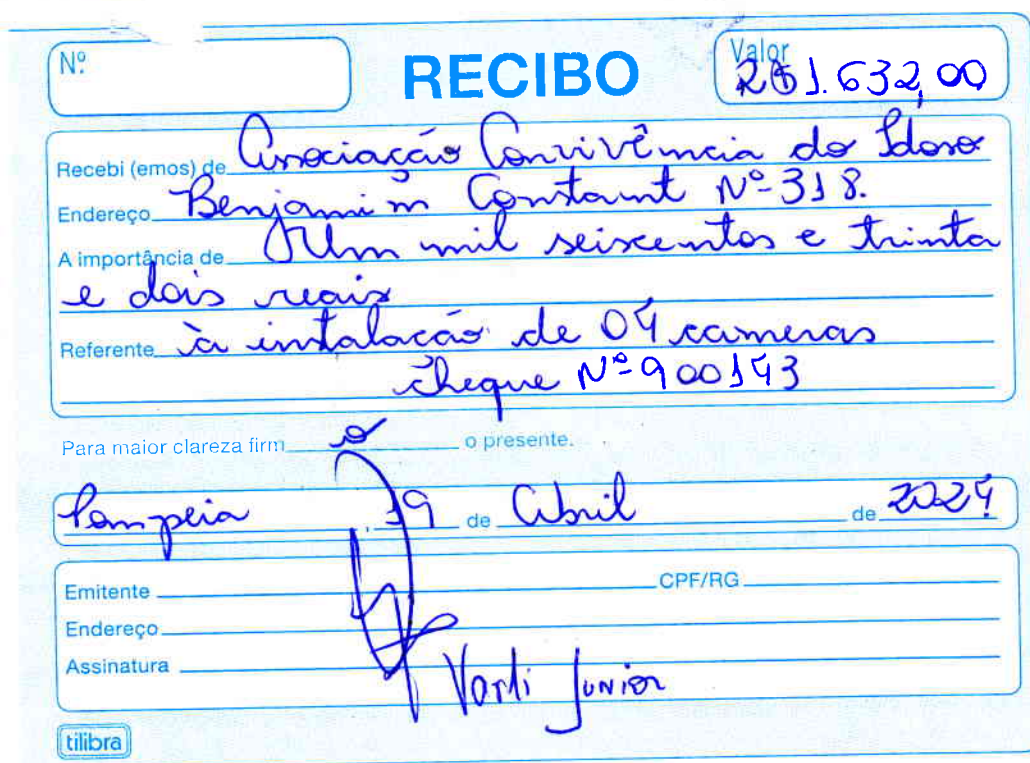 Nº
RECIBO
Valor
R$1.632,00
Recebi (emos) de Associação Convivência do Idoso
Endereço Benjamim Constant Nº 318.
A importância de Um mil seiscentos e trinta
e dois reais
Referente à instalação de 04 cameras
cheque Nº 900143
Para maior clareza firm o o presente.
Pompeia, 19 de Abril de 2024
Emitente CPF/RG
Endereço
Assinatura
Junior
tilibra